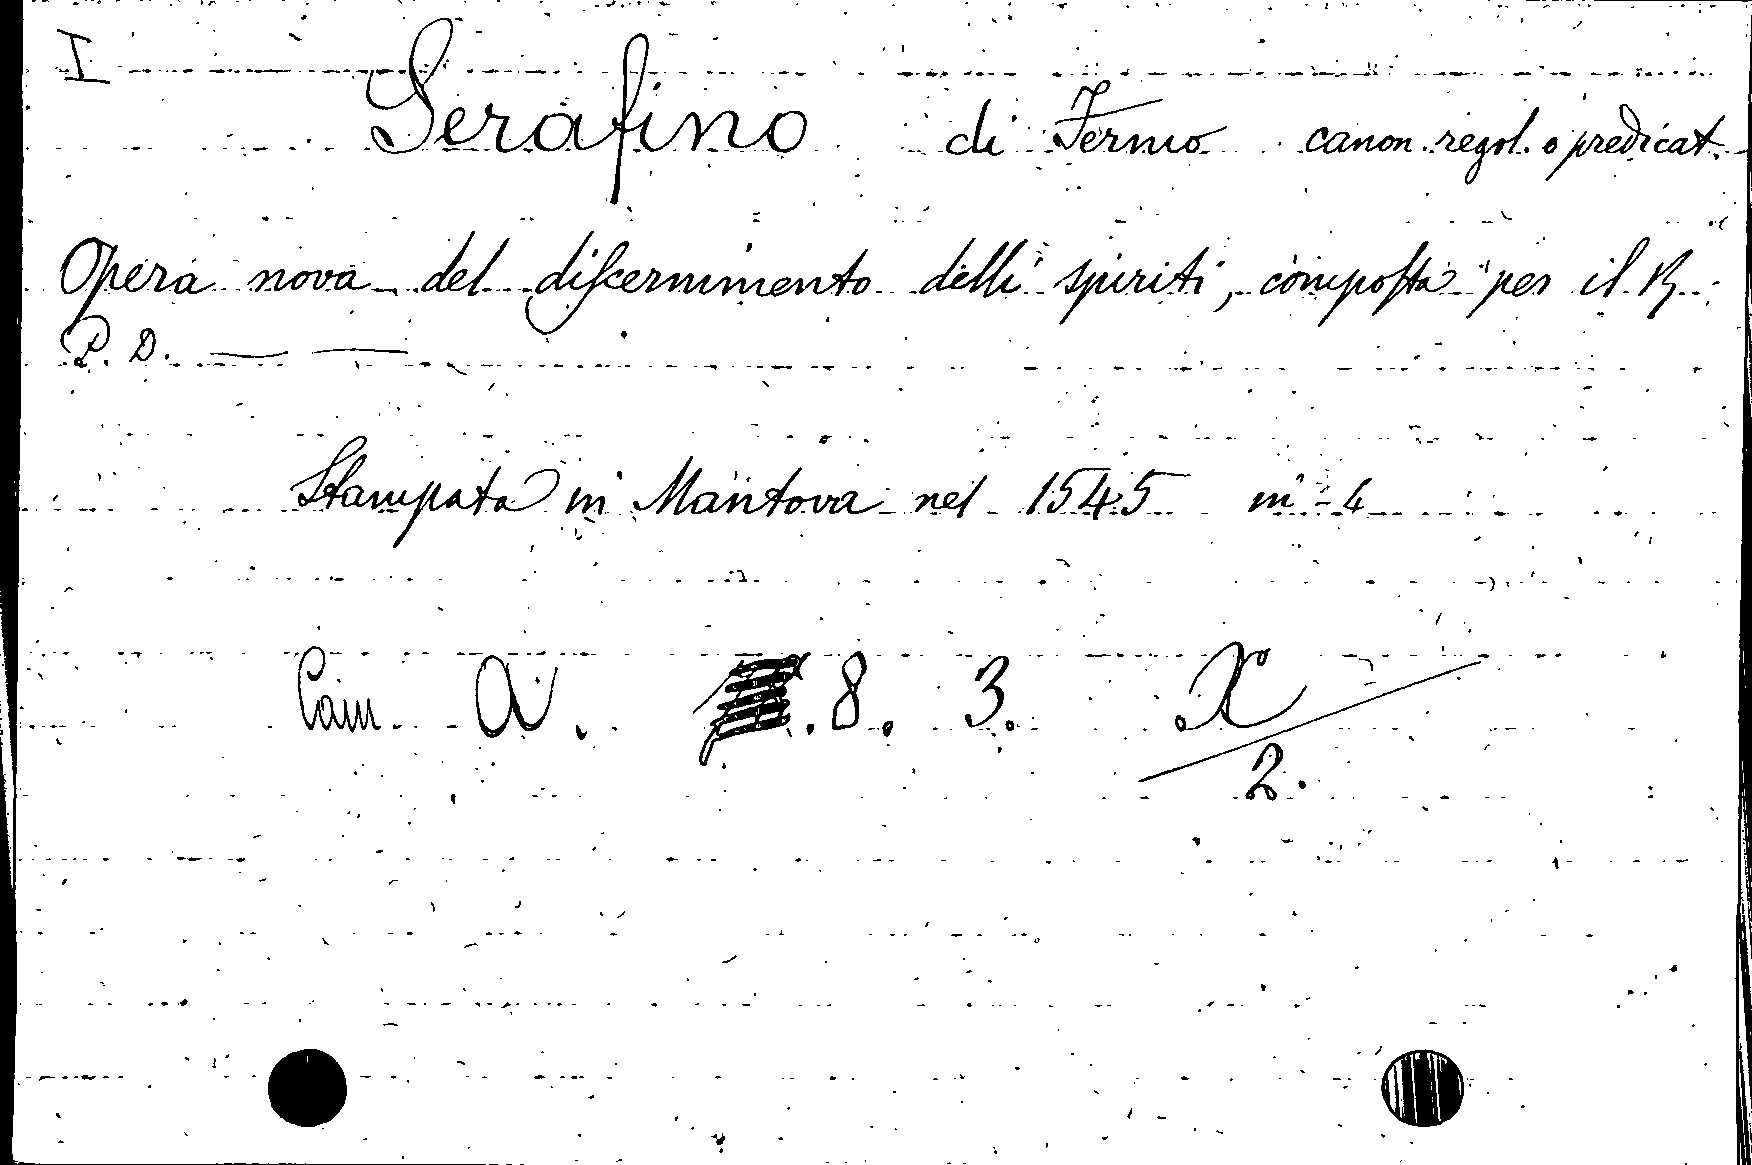 I
Serafino di Fermo canon. regol. o predicat.
Opera nova del diſcernimento delli spiriti, compoſta per il R.
P. D. — —
Stampata in Mantova nel 1545 in-4
Cam A. 8. 3. X/2.